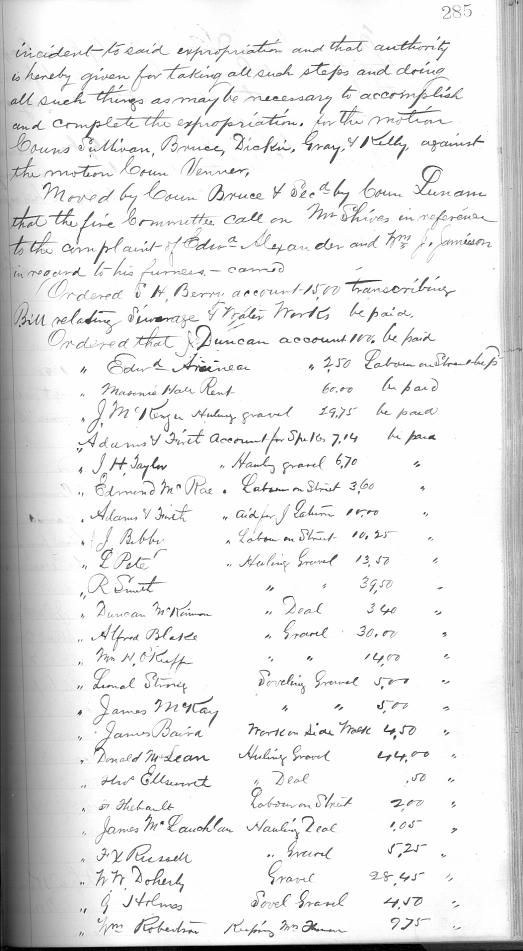 285
incident to said expropriation and that authority
is hereby given for taking all such steps and doing
all such things as may be necessary to accomplish
and complete the expropriation. for the motion
Couns Sullivan, Bruce, Dickie, Gray, & Kelly against
the motion Coun Venner,
Moved by Coun Bruce & Secd by Coun Dunam
that the fire Committee call on Mr Shives in reference
to the complaint of Edwd Alexander and Wm J. Jamieson
in regard to his furness - carried
Ordered S H, Berry account 15,00 transcribing
Bill relating Sewerage & Water Works be paid.
Ordered that J. Duncan account 100. be paid
" Edwd " 2,50 Labour on Street be pd
" Masonic Hall Rent 60.00 be paid
" J. McKenzie Huling gravel 29,75 be paid
" Adams & Firth Account for Spikes 7,14 be paid
" J H Taylor " Hauling gravel 6,70 "
" Edmund McRae " Labour on Street 3,60 "
" Adams & Firth " aid for J 10.00 "
" J. Bibbs " Labour on Street 10,25 "
" L Pete " Huling Gravel 13,50 "
" R Smith " " 39,50 "
" Duncan McKinnon " Deal 3 40 "
" Alfred Blake " Gravel 30.00 "
" Wm H. O'Keeff " " 14,00 "
" Lional Strong Soveling Gravel 5,00 "
" James McKay " " 5,00 "
" James Baird Work on Side Walk 4,50 "
" Donald McLean Huling Gravel 44,00 "
" Ellsworth " Deal ,50 "
" Thebault Labour on Street 2,00 "
" James McLauchlan Hauling Deal 1,05 "
" F X Russell " Gravel 5,25 "
" W W. Doherty Gravel 28,45 "
" G Holmes Sovel Gravel 4,50 "
" Wm Robertson Keeping Mrs 7 75 "